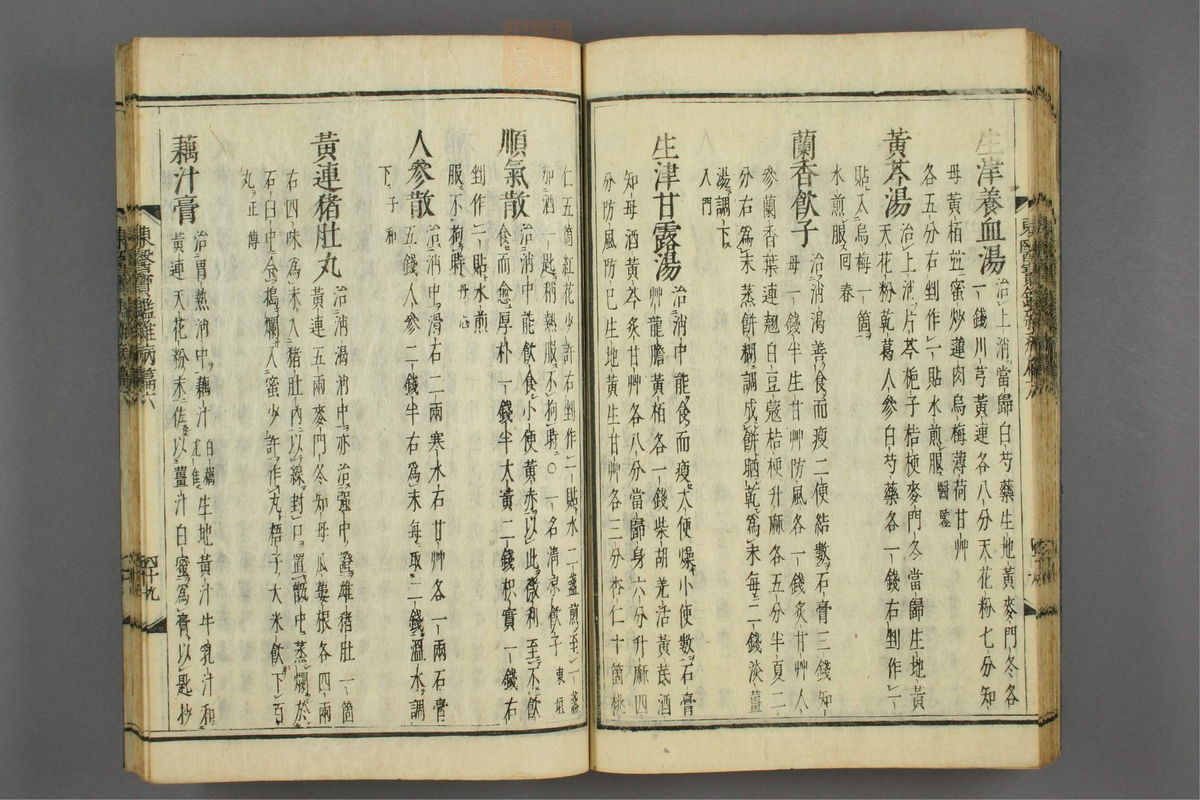 生津養血湯 治上消當歸白芍藥生地黃麥門冬各
一錢川芎黃連各八分天花粉七分知
母黃栢並蜜炒蓮肉烏梅薄荷甘艸
各五分右剉作一貼水煎服醫鑑
黃芩湯 治上消片芩梔子桔梗麥門冬當歸生地黃
天花粉乾葛人參白芍藥各一錢右剉作一
貼入烏梅一箇
水煎服回春
蘭香飮子 治消渴善食而瘦二便結數石膏三錢知
母一錢半生甘艸防風各一錢炙甘艸人
參蘭香葉連翹白豆蔻桔梗升麻各五分半夏二
分右爲末蒸餠糊調成餠晒乾爲末每二錢淡薑
湯調下
入門
生津甘露湯 治消中能食而瘦大便燥小便數石膏
艸龍膽黃栢各一錢柴胡羌活黃芪酒
知母酒黃芩炙甘艸各八分當歸身六分升麻四
分防風防己生地黃生甘艸各三分杏仁十箇桃
仁五箇紅花少許右剉作一貼水二盞煎至一盞
加酒一匙稍熱服不拘時○一名淸凉飮子東垣
順氣散 治消中能飮食小便黃赤以此微利至不飮
食而愈厚朴一錢半大黃二錢枳實一錢右
剉作一貼水煎
服不拘時丹心
人參散 治消中滑石二兩寒水石甘艸各一兩石膏
五錢人參二錢半右爲末每取二錢溫水調
下子和
黃連猪肚丸 治消渴消中亦治強中證雄猪肚一箇
黃連五兩麥門冬知母瓜蔞根各四兩
右四味爲末入猪肚內以線封口置甑中蒸爛於
石臼中合搗爛入蜜少許作丸梧子大米飮下百
丸正傳
藕汁膏 治胃熱消中藕汁白藕尤佳生地黃汁牛乳汁和
黃連天花粉末佐以薑汁白蜜爲膏以匙抄
東醫寶鑑雜病篇六
四十九